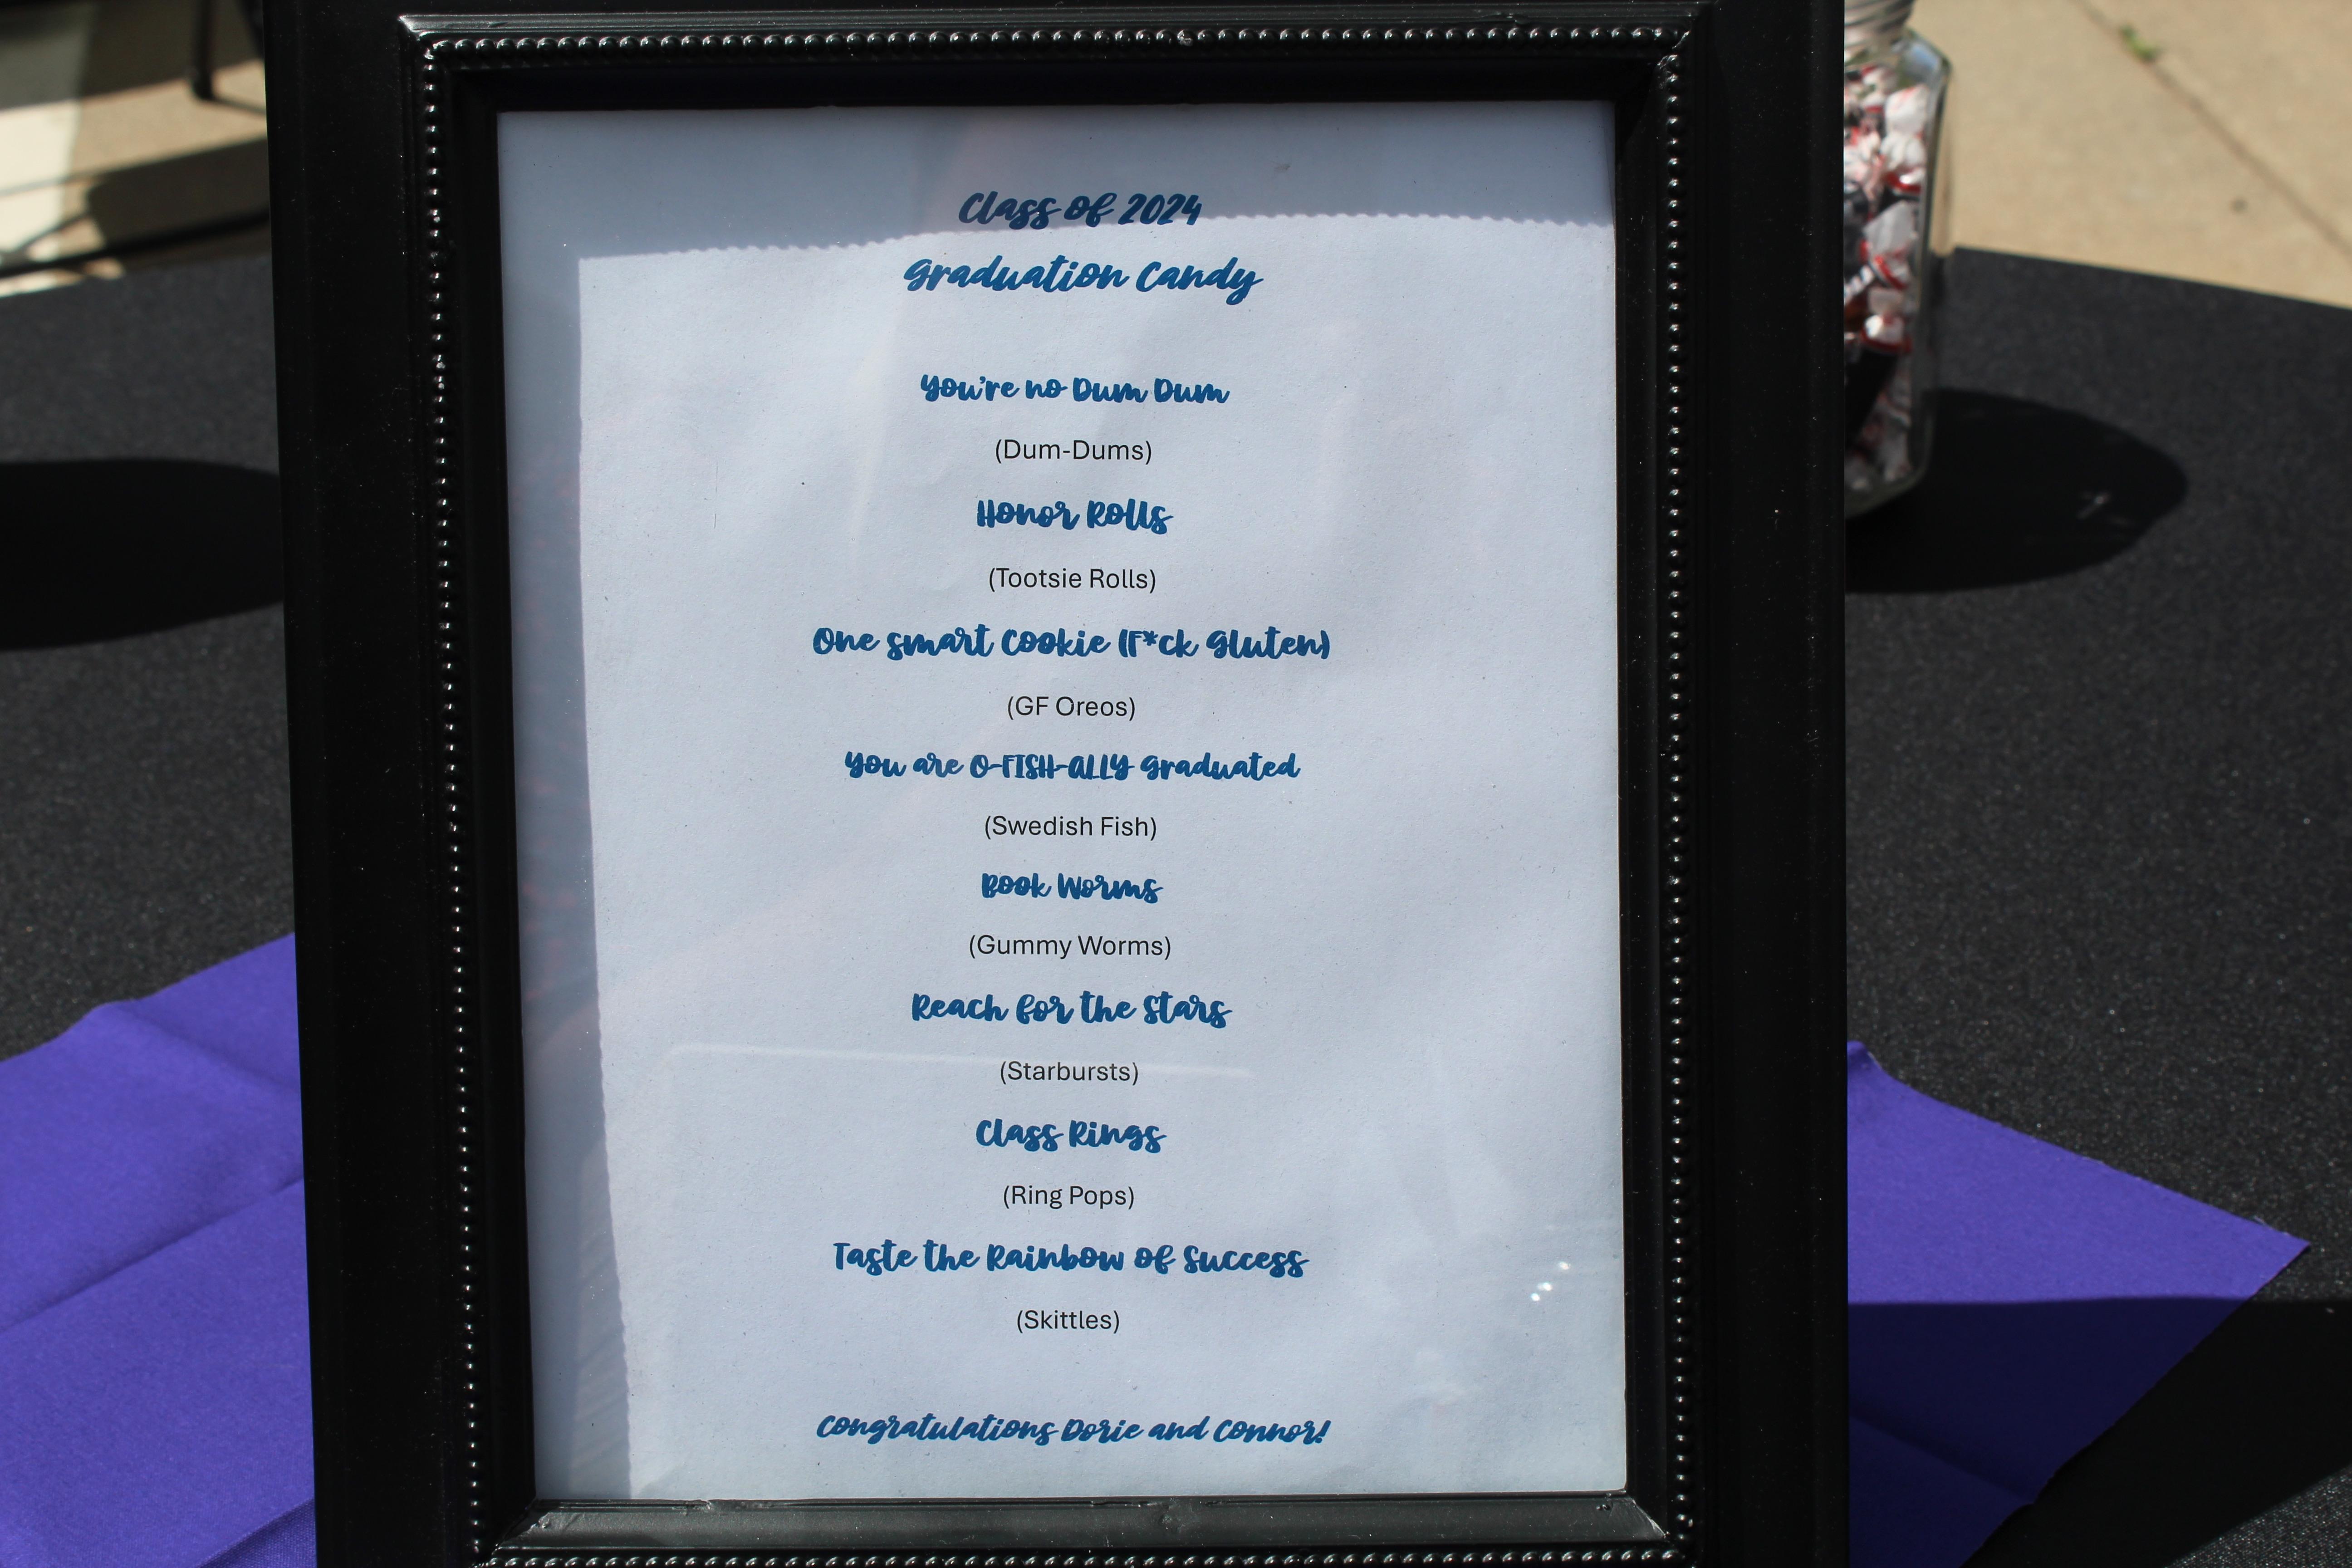 Class of 2024
Graduation Candy
You're no Dum Dum
(Dum-Dums)
Honor Rolls
(Tootsie Rolls)
One Smart Cookie (F*ck Gluten)
(GF Oreos)
You are O-FISH-ALLY Graduated
(Swedish Fish)
Book Worms
(Gummy Worms)
Reach for the Stars
(Starbursts)
Class Rings
(Ring Pops)
Taste the Rainbow of Success
(Skittles)
Congratulations Dorie and Connor!